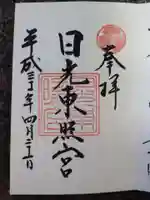 奉拝
日光東照宮
平成三十年四月二十一日